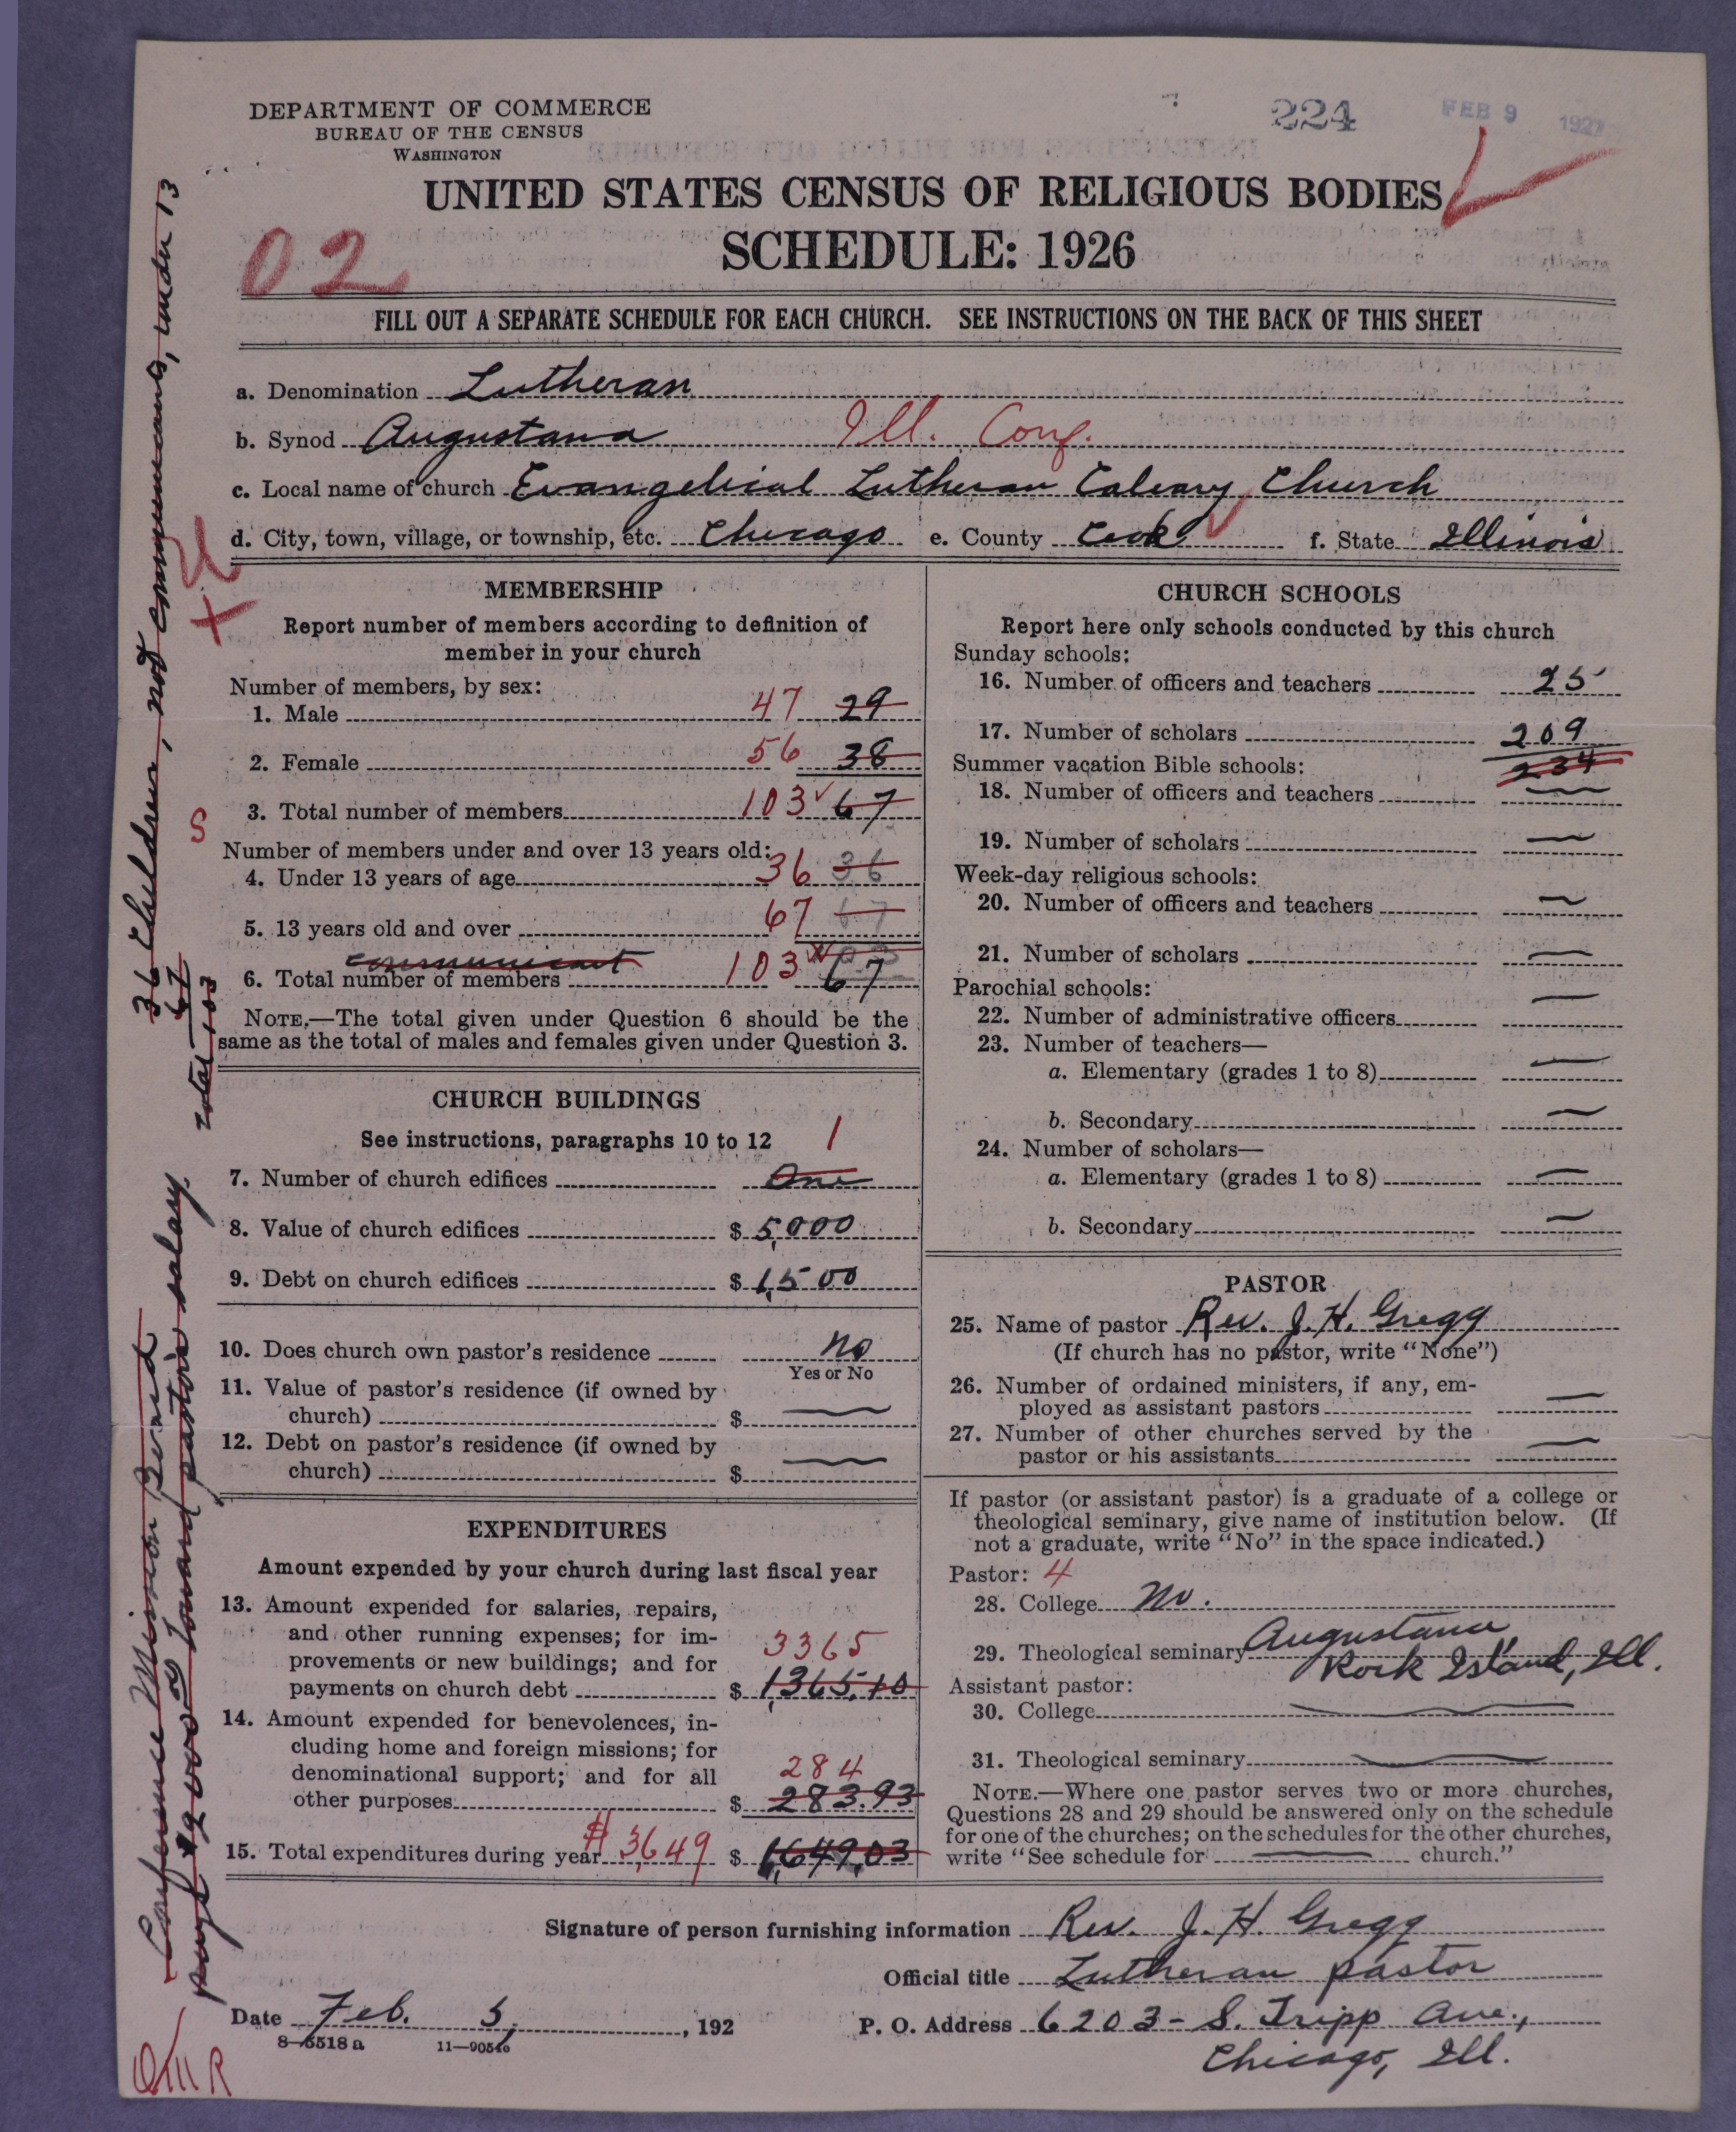 DEPARTMENT OF COMMERCE
BUREAU OF THE CENSUS
WASHINGTON
224
FEB 9 1927
UNITED STATES CENSUS OF RELIGIOUS BODIES
SCHEDULE: 1926
02
FILL OUT A SEPARATE SCHEDULE FOR EACH CHURCH. SEE INSTRUCTIONS ON THE BACK OF THIS SHEET
a. Denomination Lutheran
b. Synod Augustana Ill. Conf.
c. Local name of church Evangelical Lutheran Calvary Church
d. City, town, village, or township, etc. Chicago e. County Cook f. State Illinois
MEMBERSHIP
Report number of members according to definition of
member in your church
Number of members, by sex:
1. Male 47 29
2. Female 56 38
3. Total number of members 103 67
Number of members under and over 13 years old:
4. Under 13 years of age 36 36
5. 13 years old and over 67 67
communicant
6. Total number of members 103 67
NOTE.—The total given under Question 6 should be the
same as the total of males and females given under Question 3.
CHURCH BUILDINGS
See instructions, paragraphs 10 to 12 1
7. Number of church edifices One
8. Value of church edifices $ 5,000
9. Debt on church edifices $ 1,500
10. Does church own pastor's residence No
Yes or No
11. Value of pastor's residence (if owned by
church) $ —
12. Debt on pastor's residence (if owned by
church) $ —
EXPENDITURES
Amount expended by your church during last fiscal year
13. Amount expended for salaries, repairs,
and other running expenses; for im-
provements or new buildings; and for 3365
payments on church debt $ 1,365.10
14. Amount expended for benevolences, in-
cluding home and foreign missions; for
denominational support; and for all 284
other purposes $ 283.93
15. Total expenditures during year $3,649 $ 1,649.03
CHURCH SCHOOLS
Report here only schools conducted by this church
Sunday schools:
16. Number of officers and teachers 25
17. Number of scholars 209
234
Summer vacation Bible schools:
18. Number of officers and teachers —
19. Number of scholars —
Week-day religious schools:
20. Number of officers and teachers —
21. Number of scholars —
Parochial schools:
22. Number of administrative officers —
23. Number of teachers—
a. Elementary (grades 1 to 8) —
b. Secondary —
24. Number of scholars—
a. Elementary (grades 1 to 8) —
b. Secondary —
PASTOR
25. Name of pastor Rev. J. H. Gregg
(If church has no pastor, write "None")
26. Number of ordained ministers, if any, em-
ployed as assistant pastors —
27. Number of other churches served by the
pastor or his assistants —
If pastor (or assistant pastor) is a graduate of a college or
theological seminary, give name of institution below. (If
not a graduate, write "No" in the space indicated.)
Pastor: 4
28. College No.
29. Theological seminary Augustana
Rock Island, Ill.
Assistant pastor:
30. College —
31. Theological seminary —
NOTE.—Where one pastor serves two or more churches,
Questions 28 and 29 should be answered only on the schedule
for one of the churches; on the schedules for the other churches,
write "See schedule for — church."
Signature of person furnishing information Rev. J. H. Gregg
Official title Lutheran pastor
Date Feb. 5, , 192
P. O. Address 6203 - S. Tripp Ave.,
Chicago, Ill.
8—5518 a 11—9054
36 Children, not communicants, under 13
67
total 103
S
X
Conference Mission Board
pays $2000.00 toward pastor's salary.